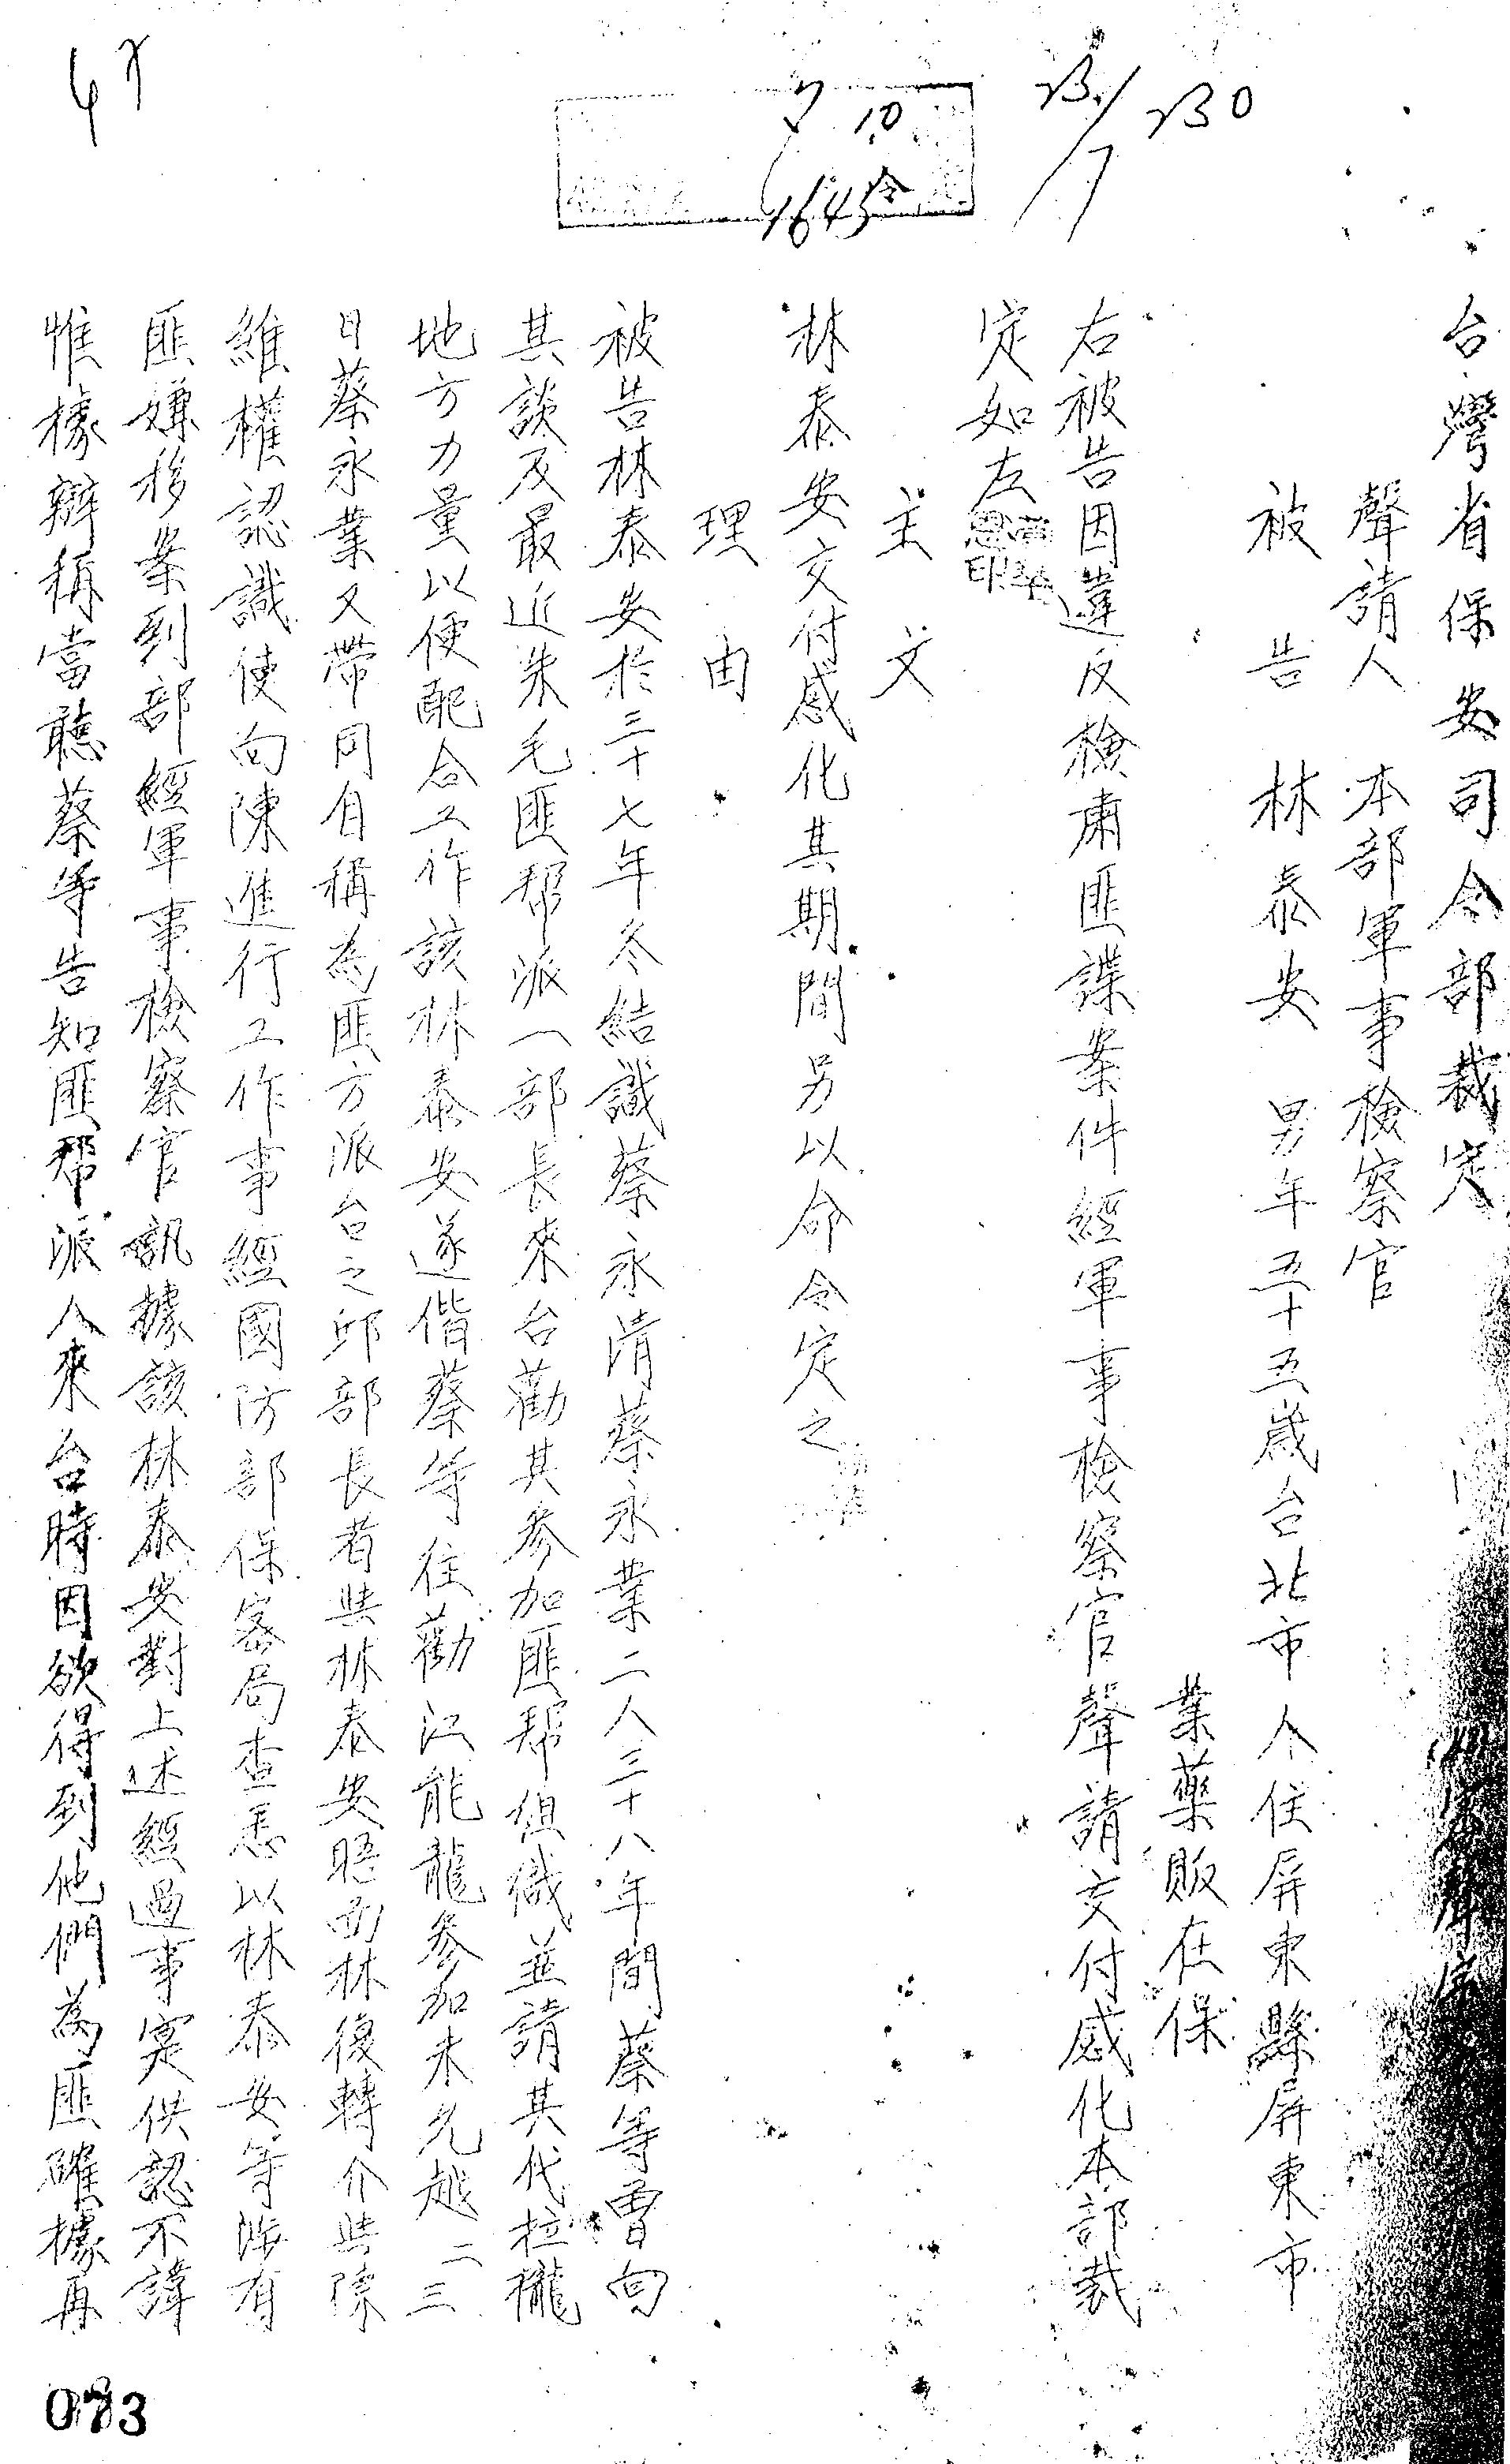 台灣省保安司令部裁定
聲請人 本部軍事檢察官
被告 林泰安 男年五十五歲台北市人住屏東縣屏東市
業藥販在保
右被告因違反檢肅匪諜案件經軍事檢察官聲請交付感化本部裁
定如左
主文
林泰安交付感化其期間另以命令定之
理由
被告林泰安於三十七年冬結識蔡永清蔡永業二人三十八年間蔡等曾向
其談及最近朱毛匪幫派一部長來台勸其參加匪幫組織並請其代拉攏
地方力量以便配合工作該林泰安遂偕蔡等往勸江能龍參加未允越二三
日蔡永業又帶同自稱為匪方派台之邱部長者與林泰安晤面林復轉介與陳
維權認識使向陳進行工作事經國防部保密局查悉以林泰安等涉有
匪嫌移案到部經軍事檢察官訊據該林泰安對上述經過事實供認不諱
惟據辯稱當聽蔡等告知匪幫派人來台時因欲得到他們為匪確據再
7 10
1645 令
230
073